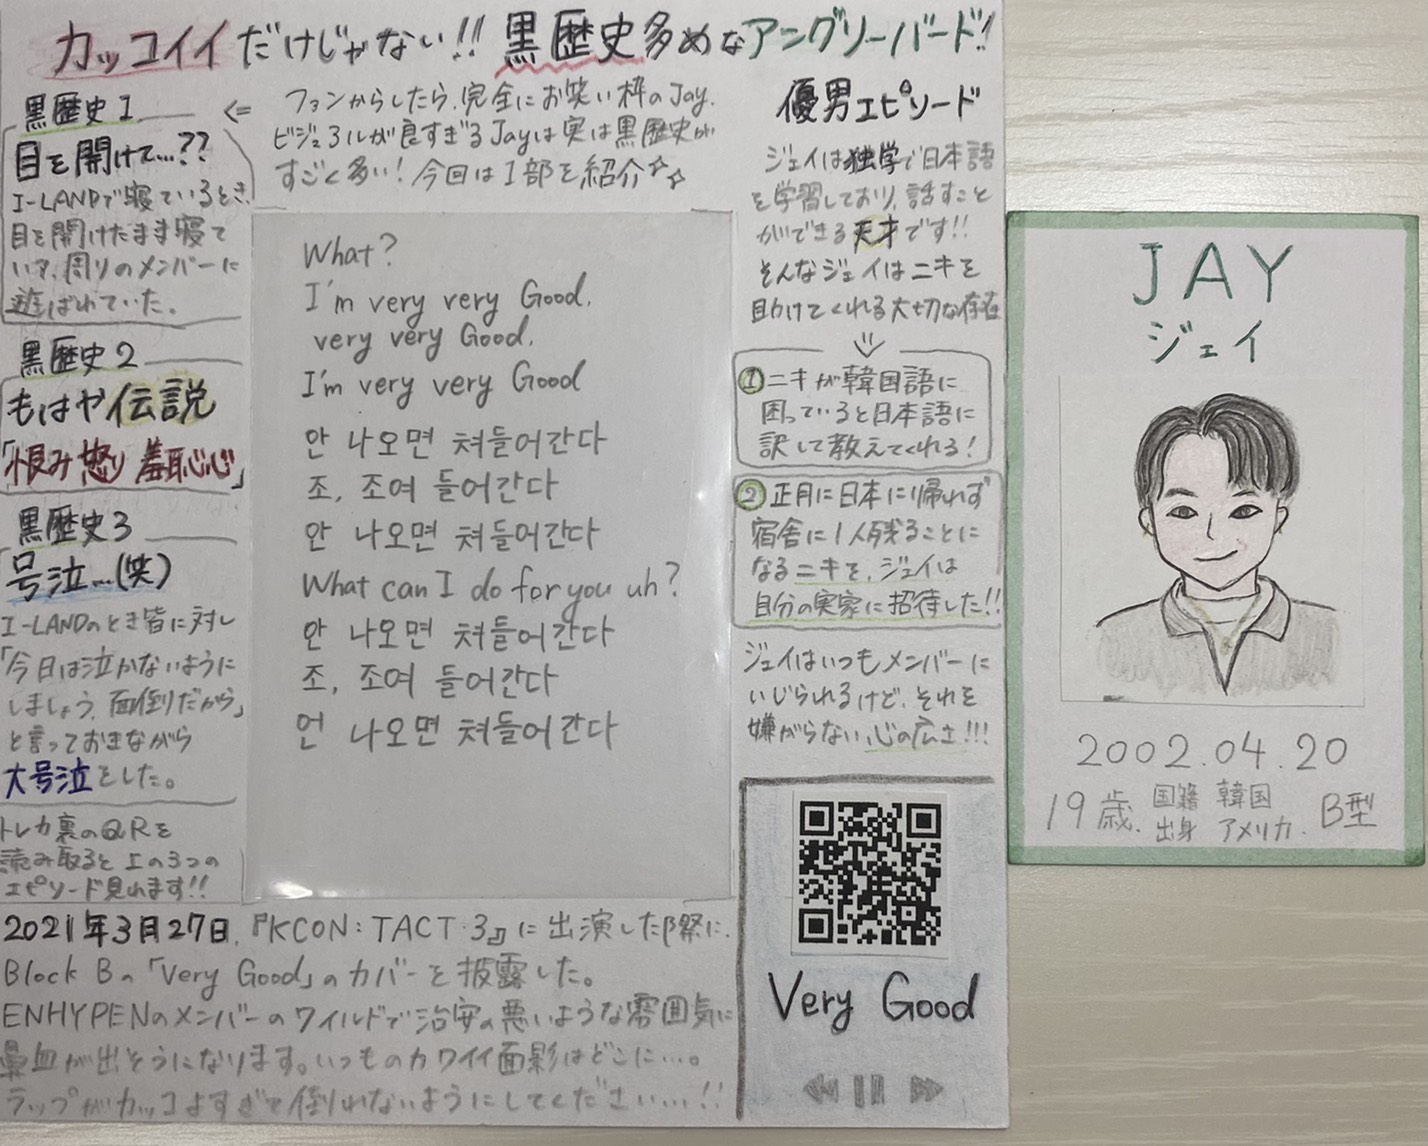 カッコイイだけじゃない!! 黒歴史多めなアングリーバード!!
黒歴史1
目を開けて…??
I-LANDで寝ているとき、
目を開けたまま寝て
いて、周りのメンバーに
遊ばれていた。
<= ファンからしたら、完全にお笑い枠のJay.
ビジュアルが良すぎるJayは実は黒歴史が
すごく多い!今回は1部を紹介☆☆
黒歴史2
もはや伝説
「恨み 怒り 羞恥心」
黒歴史3
号泣…(笑)
I-LANDのとき皆に対し
「今日は泣かないように
しましょう、面倒だから」
と言っておきながら
大号泣をした。
トレカ裏のQRを
読み取ると上の3つの
エピソード見れます!!
What?
I'm very very Good,
very very Good,
I'm very very Good
안 나오면 쳐들어간다
조, 조여 들어간다
안 나오면 쳐들어간다
What can I do for you uh?
안 나오면 쳐들어간다
조, 조여 들어간다
언 나오면 쳐들어간다
優男エピソード
ジェイは独学で日本語
を学習しており、話すこと
ができる天才です!!
そんなジェイはニキを
助けてくれる大切な存在
① ニキが韓国語に
困っていると日本語に
訳して教えてくれる!
② 正月に日本に帰れず
宿舎に1人残ることに
なるニキを、ジェイは
自分の実家に招待した!!
ジェイはいつもメンバーに
いじられるけど、それを
嫌がらない、心の広さ!!!
Very Good
2021年3月27日、『KCON:TACT 3』に出演した際に、
Block Bの「Very Good」のカバーを披露した。
ENHYPENのメンバーのワイルドで治安の悪いような雰囲気に
鼻血が出そうになります。いつものカワイイ面影はどこに…。
ラップがカッコよすぎて倒れないようにしてください…!!
JAY
ジェイ
2002.04.20
19歳. 国籍 韓国 B型
出身 アメリカ.